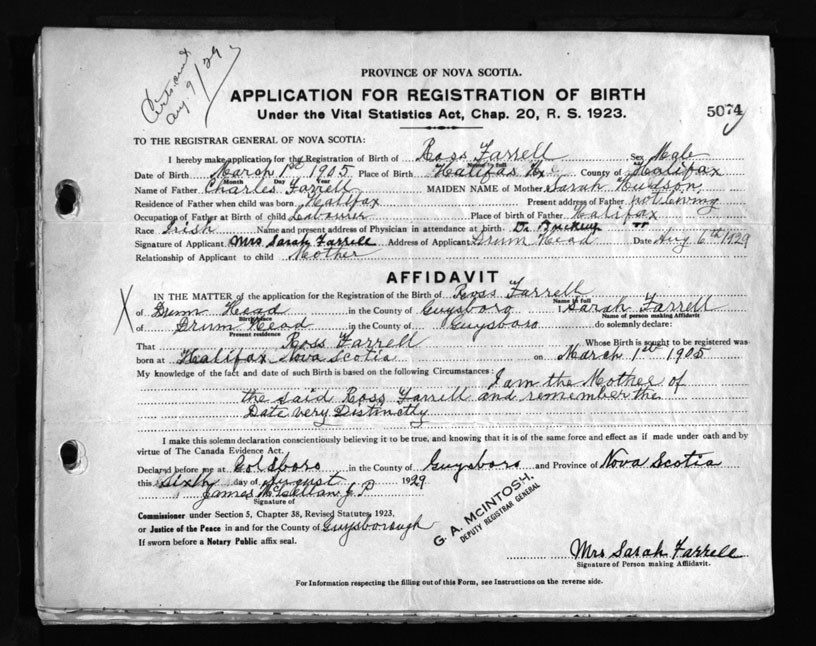 Cert. sent
Aug 9/29
PROVINCE OF NOVA SCOTIA.
APPLICATION FOR REGISTRATION OF BIRTH
Under the Vital Statistics Act, Chap. 20, R. S. 1923.
5074
TO THE REGISTRAR GENERAL OF NOVA SCOTIA:
I hereby make application for the Registration of Birth of Ross Farrell Sex Male
Name in full
Date of Birth March 1st 1905 Place of Birth Halifax Hx County of Halifax
Month Day Year
Name of Father Charles Farrell MAIDEN NAME of Mother Sarah Hudson
Residence of Father when child was born Halifax Present address of Father not living
Occupation of Father at Birth of child Labourer Place of birth of Father Halifax
Race Irish Name and present address of Physician in attendance at birth Dr
Signature of Applicant Mrs Sarah Farrell Address of Applicant Drum Head Date Aug 6th 1929
Relationship of Applicant to child Mother
AFFIDAVIT
X
IN THE MATTER of the application for the Registration of the Birth of Ross Farrell
Name in full
of Drum Head in the County of Guysboro I, Sarah Farrell
Birthplace Name of person making Affidavit
of Drum Head in the County of Guysboro do solemnly declare:
Present residence
That Ross Farrell Whose Birth is sought to be registered was
born at Halifax Nova Scotia on March 1st 1905
My knowledge of the fact and date of such Birth is based on the following Circumstances: I am the Mother of
the said Ross Farrell and remember the
Date very Distinctly
I make this solemn declaration conscientiously believing it to be true, and knowing that it is of the same force and effect as if made under oath and by
virtue of The Canada Evidence Act.
Declared before me at Goldboro in the County of Guysboro and Province of Nova Scotia
this Sixth day of August 1929
James McLellan J P
Signature of
Commissioner under Section 5, Chapter 38, Revised Statutes, 1923,
or Justice of the Peace in and for the County of Guysborough
If sworn before a Notary Public affix seal.
G. A. McINTOSH,
DEPUTY REGISTRAR GENERAL
Mrs Sarah Farrell
Signature of Person making Affidavit.
For Information respecting the filling out of this Form, see Instructions on the reverse side.